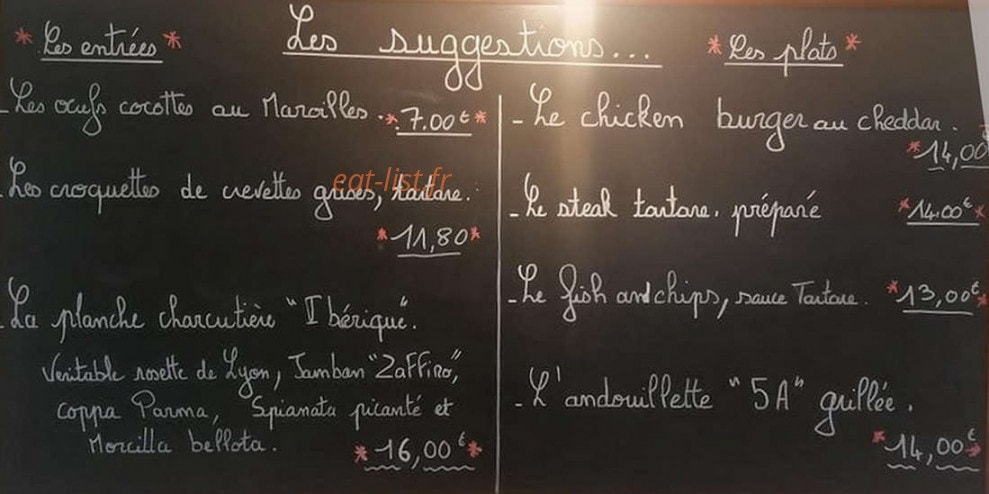 Les suggestions...
* Les entrées *
- Les œufs cocottes au Maroilles... * 7.00€ *
- Les croquettes de crevettes grises, tartare.
* 11,80 *
- La planche charcutière "Ibérique".
Veritable rosette de Lyon, Jambon "Zaffiro",
coppa Parma, Spianata picanté et
Morcilla bellota.
* 16,00€ *
* Les plats *
- Le chicken burger au cheddar.
* 14,00
- Le steak tartare. préparé * 14.00€ *
- Le fish and chips, sauce Tartare. * 13,00€ *
- L'andouillette "5A" grillée.
* 14,00€ *
eat-list.fr